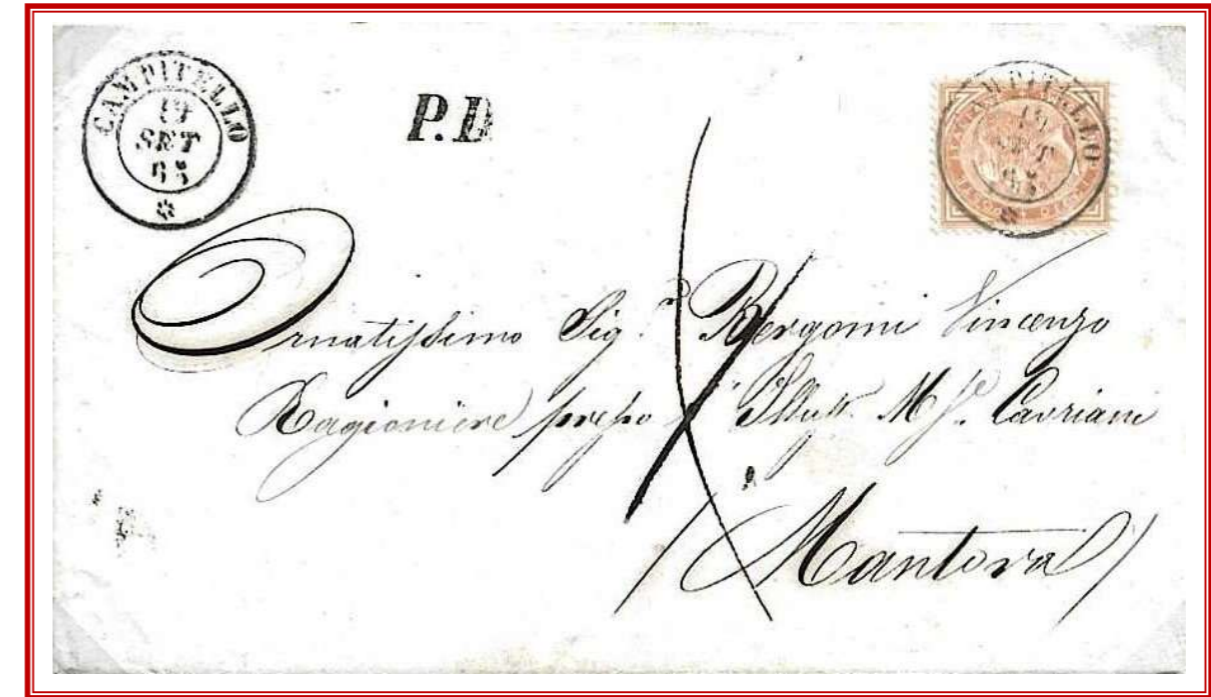 CAMPITELLO
19
SET
65
P.D
CAMPITELLO
19
SET
65
Ornatissimo Sig.r Bergomi Vincenzo
Ragioniere presso Cavriani
Mantova